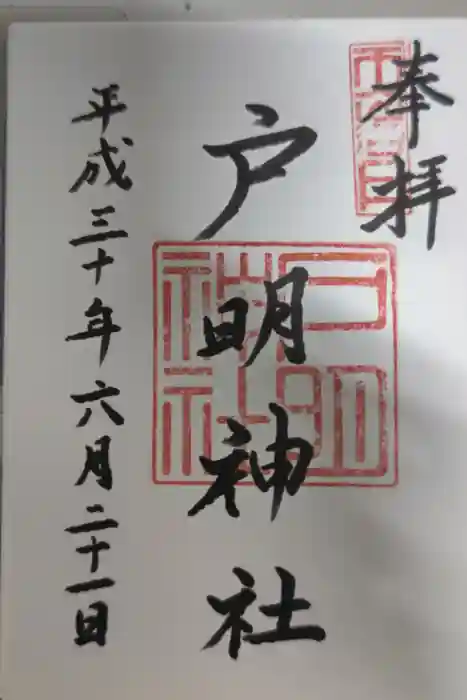 奉拝
戸明神社
戸明神社
平成三十年六月二十一日